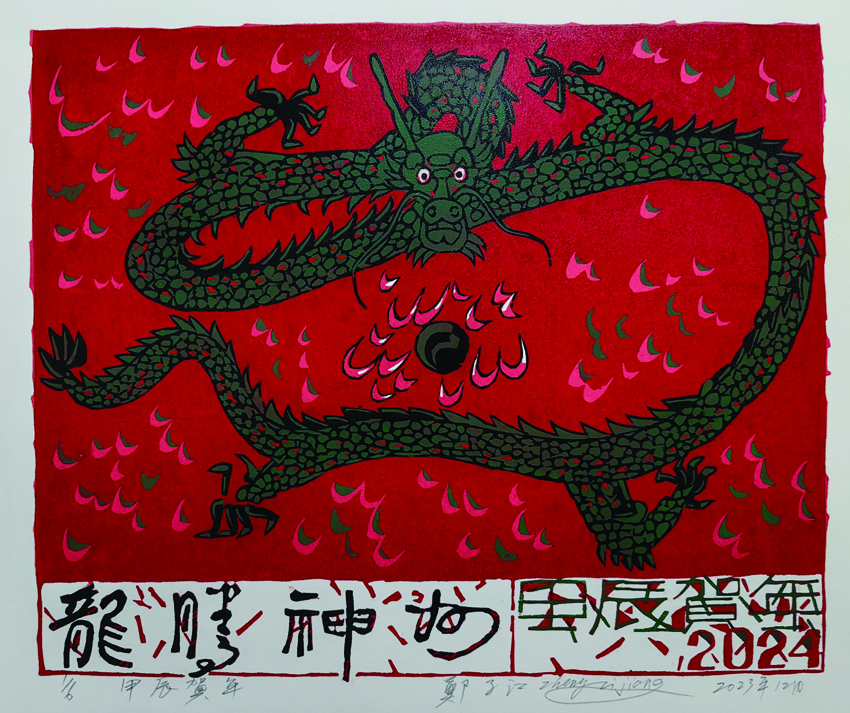 龍騰神州 甲辰賀年
2024
甲辰賀年 鄭子江 Zheng Zijiang 2023年12月